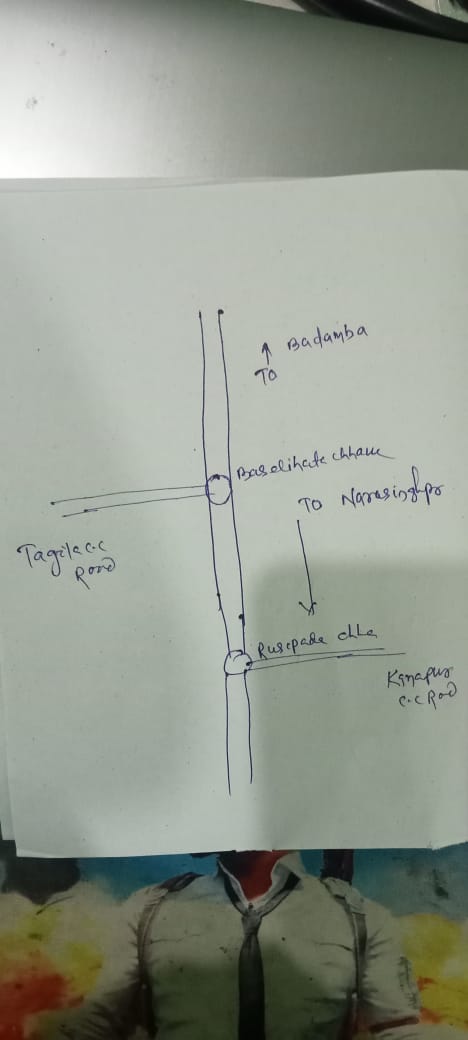 Badamba
TO
Baselihata chhak
TO Narasinghpr
Tagila c.c
Road
Rusipada chha
Kanapur
c.c Road